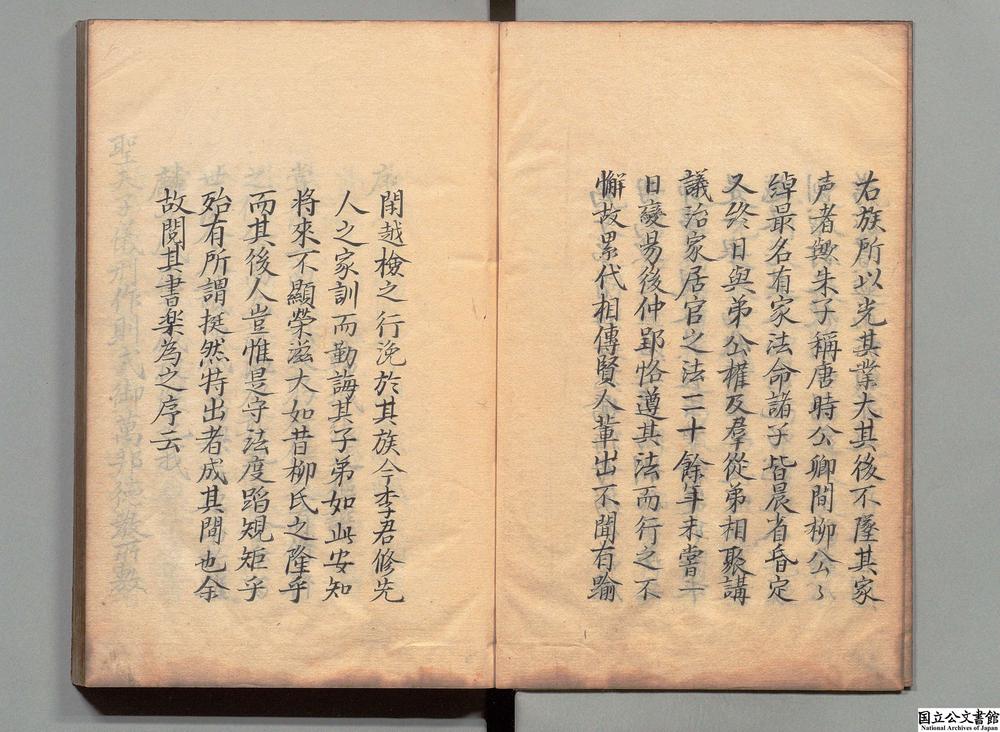 右族所以光其業大其後不墜其家
声者與朱子稱唐時公卿間柳公〻
綽最名有家法命諸子皆晨省昏定
又終日與弟公權及羣從弟相聚講
議治家居官之法二十餘年未嘗一
日變易後仲郢恪遵其法而行之不
懈故累代相傳賢人軰出不聞有踰
閑越檢之行浼於其族今李君修先
人之家訓而勤誨其子弟如此安知
將來不顯榮滋大如昔柳氏之隆乎
而其後人豈惟是守法度蹈規矩乎
殆有所謂挺然特出者成其間也余
故閱其書楽為之序云
国立公文書館
National Archives of Japan